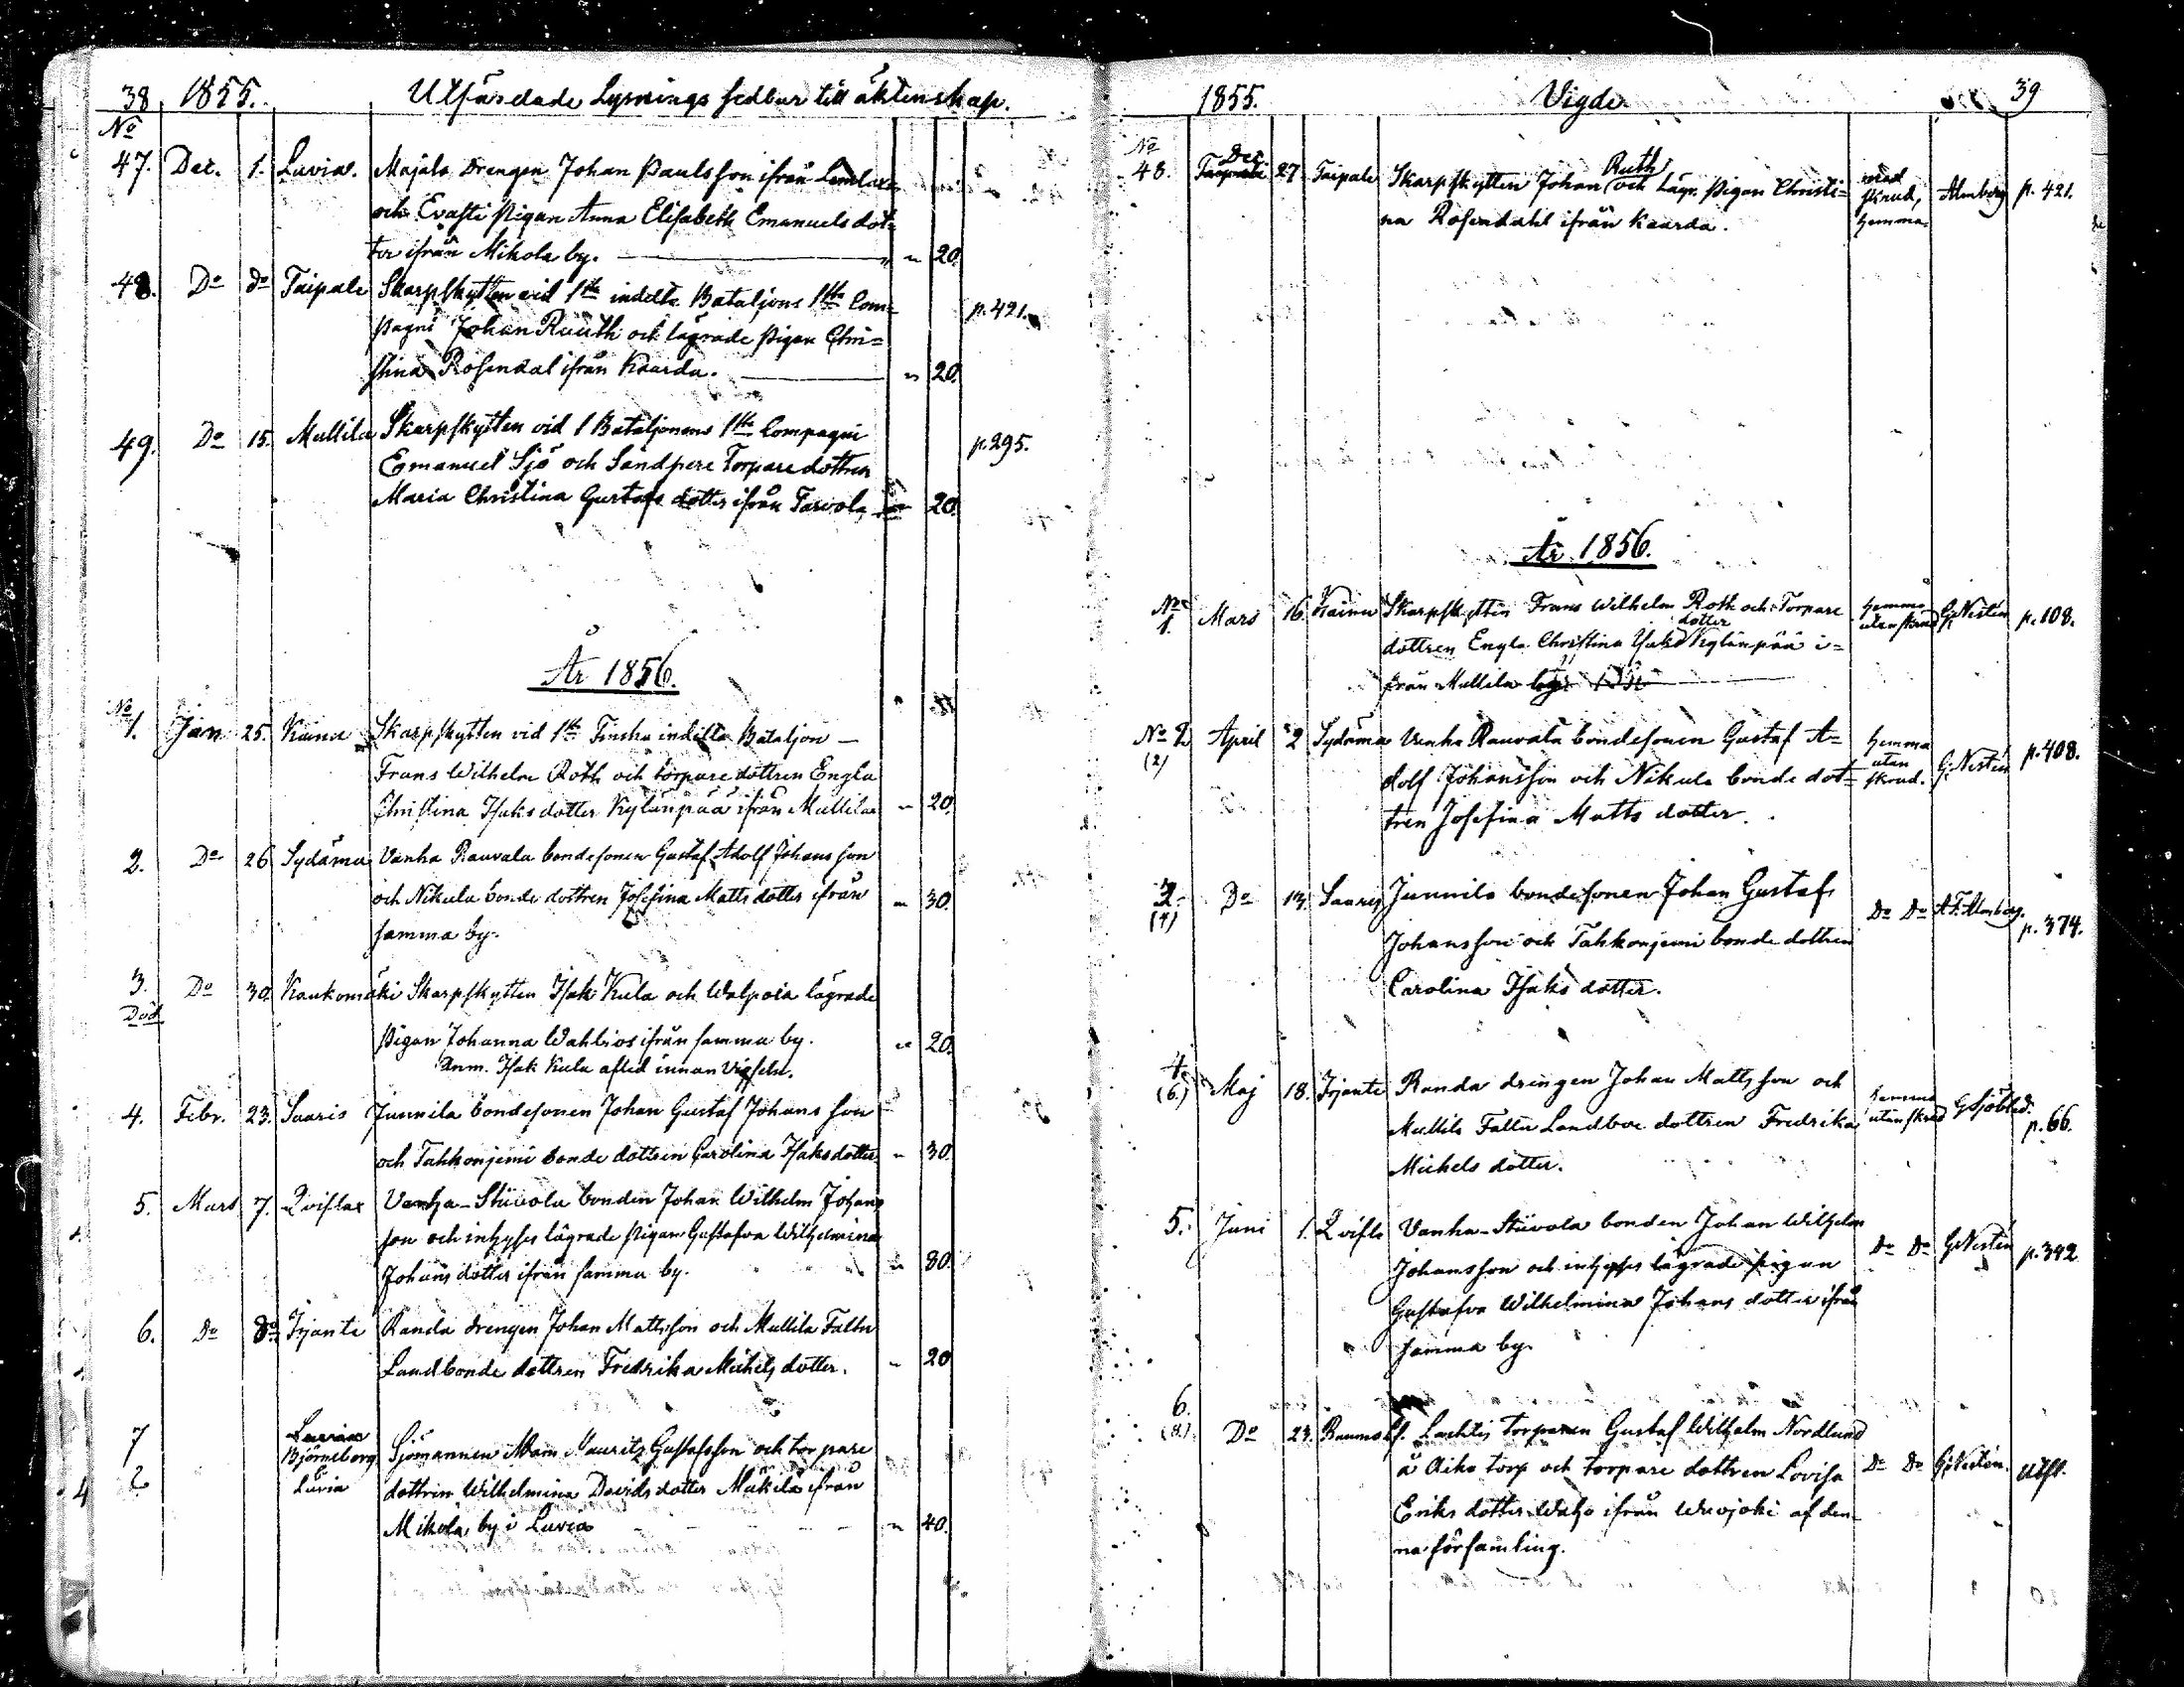 38 1855. Utfärdade Lysnings sedlar till äktenskap.
No
47. Dec. 1. Luvia. Majala Drengen Johan Paulsson ifrån
och Evasti Pigan Anna Elisabeth Emanuels dot=
ter ifrån Mikola by. " 20.
48. Do do Taipale Skarpskytten vid 1sta indelta Bataljons 1sta Com= p. 421.
pagni Johan Ruuth och lägrade Pigan Chri=
stina Rosendal ifrån Kaarda. " 20.
49. Do 15. Mullila Skarpskytten vid 1 Bataljonens 1sta Compagni p. 295.
Emanuel Sjö och Sandpere Torpare dottren
Maria Christina Gustafs dotter ifrån Tarvola 20.
År 1856.
No
1. Jan 25. Kainu Skarpskytten vid 1sta Finska indelta Bataljon —
Frans Wilhelm Roth och torpare dottren Engla
Christina Isaks dotter Kylänpää ifrån Mullila " 20.
2. Do 26 Sydämä Vanha Rauvala bondesonen Gustaf Adolf Johansson
och Nikula bonde dottren Josefina Matts dotter ifrån " 30.
samma by.
3. Do 30. Kaukomäki Skarpskytten Isak Kula och Walpola lägrade
Död
Pigan Johanna Wahlroos ifrån samma by. " 20.
Anm. Isak Kula afled innan vigseln.
4. Febr. 23. Saaris Junnila bondesonen Johan Gustaf Johansson
och Tahkonjemi bonde dottren Carolina Isaksdotter " 30.
5. Mars 7. Qviflax Vanha-Stiivola bonden Johan Wilhelm Johans
son och inhyses lägrade Pigan Gustafva Wilhelmina
Johans dotter ifrån samma by. " 30.
6. Do 8. Irjante Randa drengen Johan Mattsson och Mullila Fallu
Landbonde dottren Fredrika Michels dotter. " 20
Luvia
7 Björneborg Sjömannen Adam Mauritz Gustafsson och torpare
Luvia dottren Wilhelmina Davids dotter Mäkilä ifrån
Mikola by i Luvia " 40.
1855. Vigde 39
No Dec Ruth med
48. 27 Taipale Skarpskytten Johan och Lägr. Pigan Christi= skrud, Almberg p. 421.
na Rosendahl ifrån Kaarda. hemma
År 1856.
No
1. Mars 16. Kainu Skarpskytten Frans Wilhelm Roth och Torpare hemma utan skrud G. Nestén p. 108.
dotter
dottren Engla Christina Isaks Kylänpää i=
från Mullila by.
No 2 (2) April 2 Sydämä Vanha Rauvala bondesonen Gustaf A= hemma utan skrud. G. Nestén p. 408.
dolf Johansson och Nikula bonde dot=
tren Josefina Matts dotter.
3. (4) Do 13. Saaris Junnila bondesonen Johan Gustaf Do Do A. F. Almberg. p. 374.
Johansson och Tahkonjemi bonde dottren
Carolina Isaks dotter.
4. (6.) Maj 18. Irjante Randa drengen Johan Mattsson och hemma utan skrud G Sjöblad. p. 66.
Mullila Fallu Landboe dottren Fredrika
Michels dotter.
5. Juni 1. Qvifla Vanha-Stiivola bonden Johan Wilhelm Do Do G Nestén p. 342
Johansson och inhyses lägrade pigan
Gustafva Wilhelmina Johans dotter ifrån
samma by.
6. (8.) Do 23. Raumo Lachtis torparen Gustaf Wilhelm Nordlund
å Aiko torp och torpare dottren Lovisa Do Do G. Nestén. utfl.
Eriks dotter Waho ifrån Wuojoki af den=
na församling.